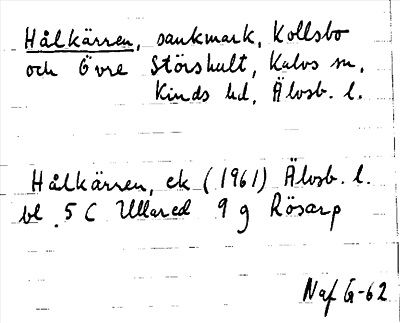 Hålkärren, sankmark, Kollsbo
och Övre Störshult, Kalvs sn,
Kinds hd, Älvsb. l.
Hålkärren, ek (1961) Älvsb. l.
bl 5 C Ullared 9 g Rösarp
Naf G-62